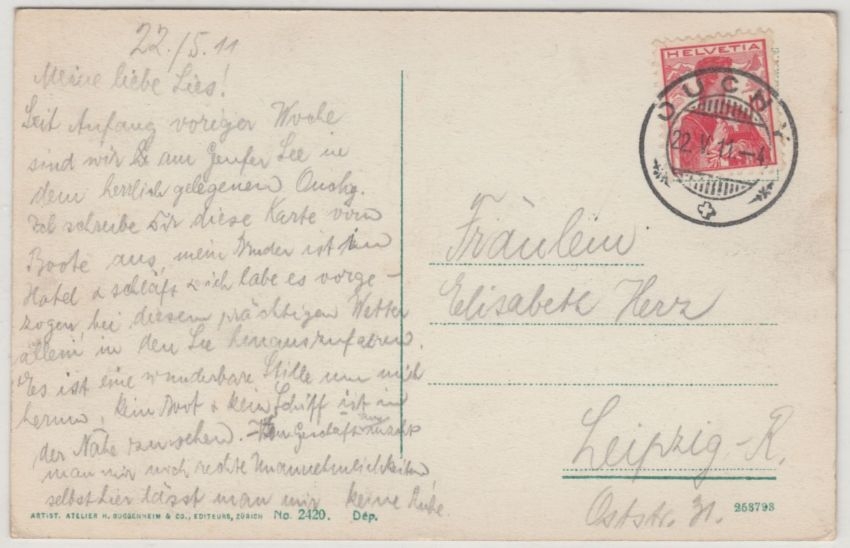 22./5.11
Meine liebe Lies!
Seit Anfang voriger Woche
sind wir am Genfer See in
dem herrlich gelegenen Ouchy.
Ich schreibe Dir diese Karte vom
Boote aus, mein Bruder ist im
Hotel & schläft & ich habe es vorge-
zogen, bei diesem prächtigen Wetter
allein in den See hinauszufahren.
Es ist eine wunderbare Stille um mich
herum, kein Boot & kein Schiff ist in
der Nähe zu sehen. - Geschäft aus macht
man mir noch rechte Unannehmlichkeiten
selbst hier lässt man mir keine Ruhe.
ARTIST. ATELIER H. GUGGENHEIM & CO., EDITEURS, ZÜRICH No. 2420. Dép.
HELVETIA
OUCHY
22.V.11.-4
Fräulein
Elisabeth Herz
Leipzig-R.
Oststr. 31.
253793